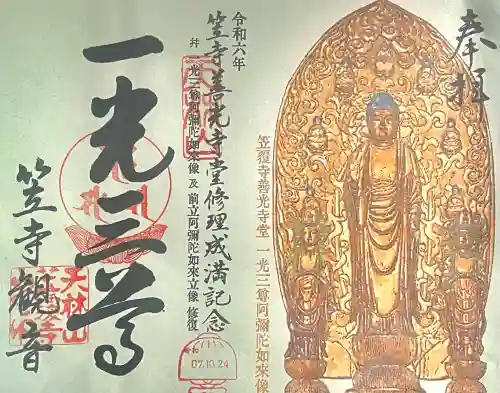 奉拝
笠覆寺善光寺堂 一光三尊阿彌陀如来像
令和六年
笠寺善光寺堂修理成満記念
幷 一光三尊阿彌陀如来像 及 前立阿彌陀如来立像 修復
令和
07.10.24
一光三尊
笠寺観音
天林山